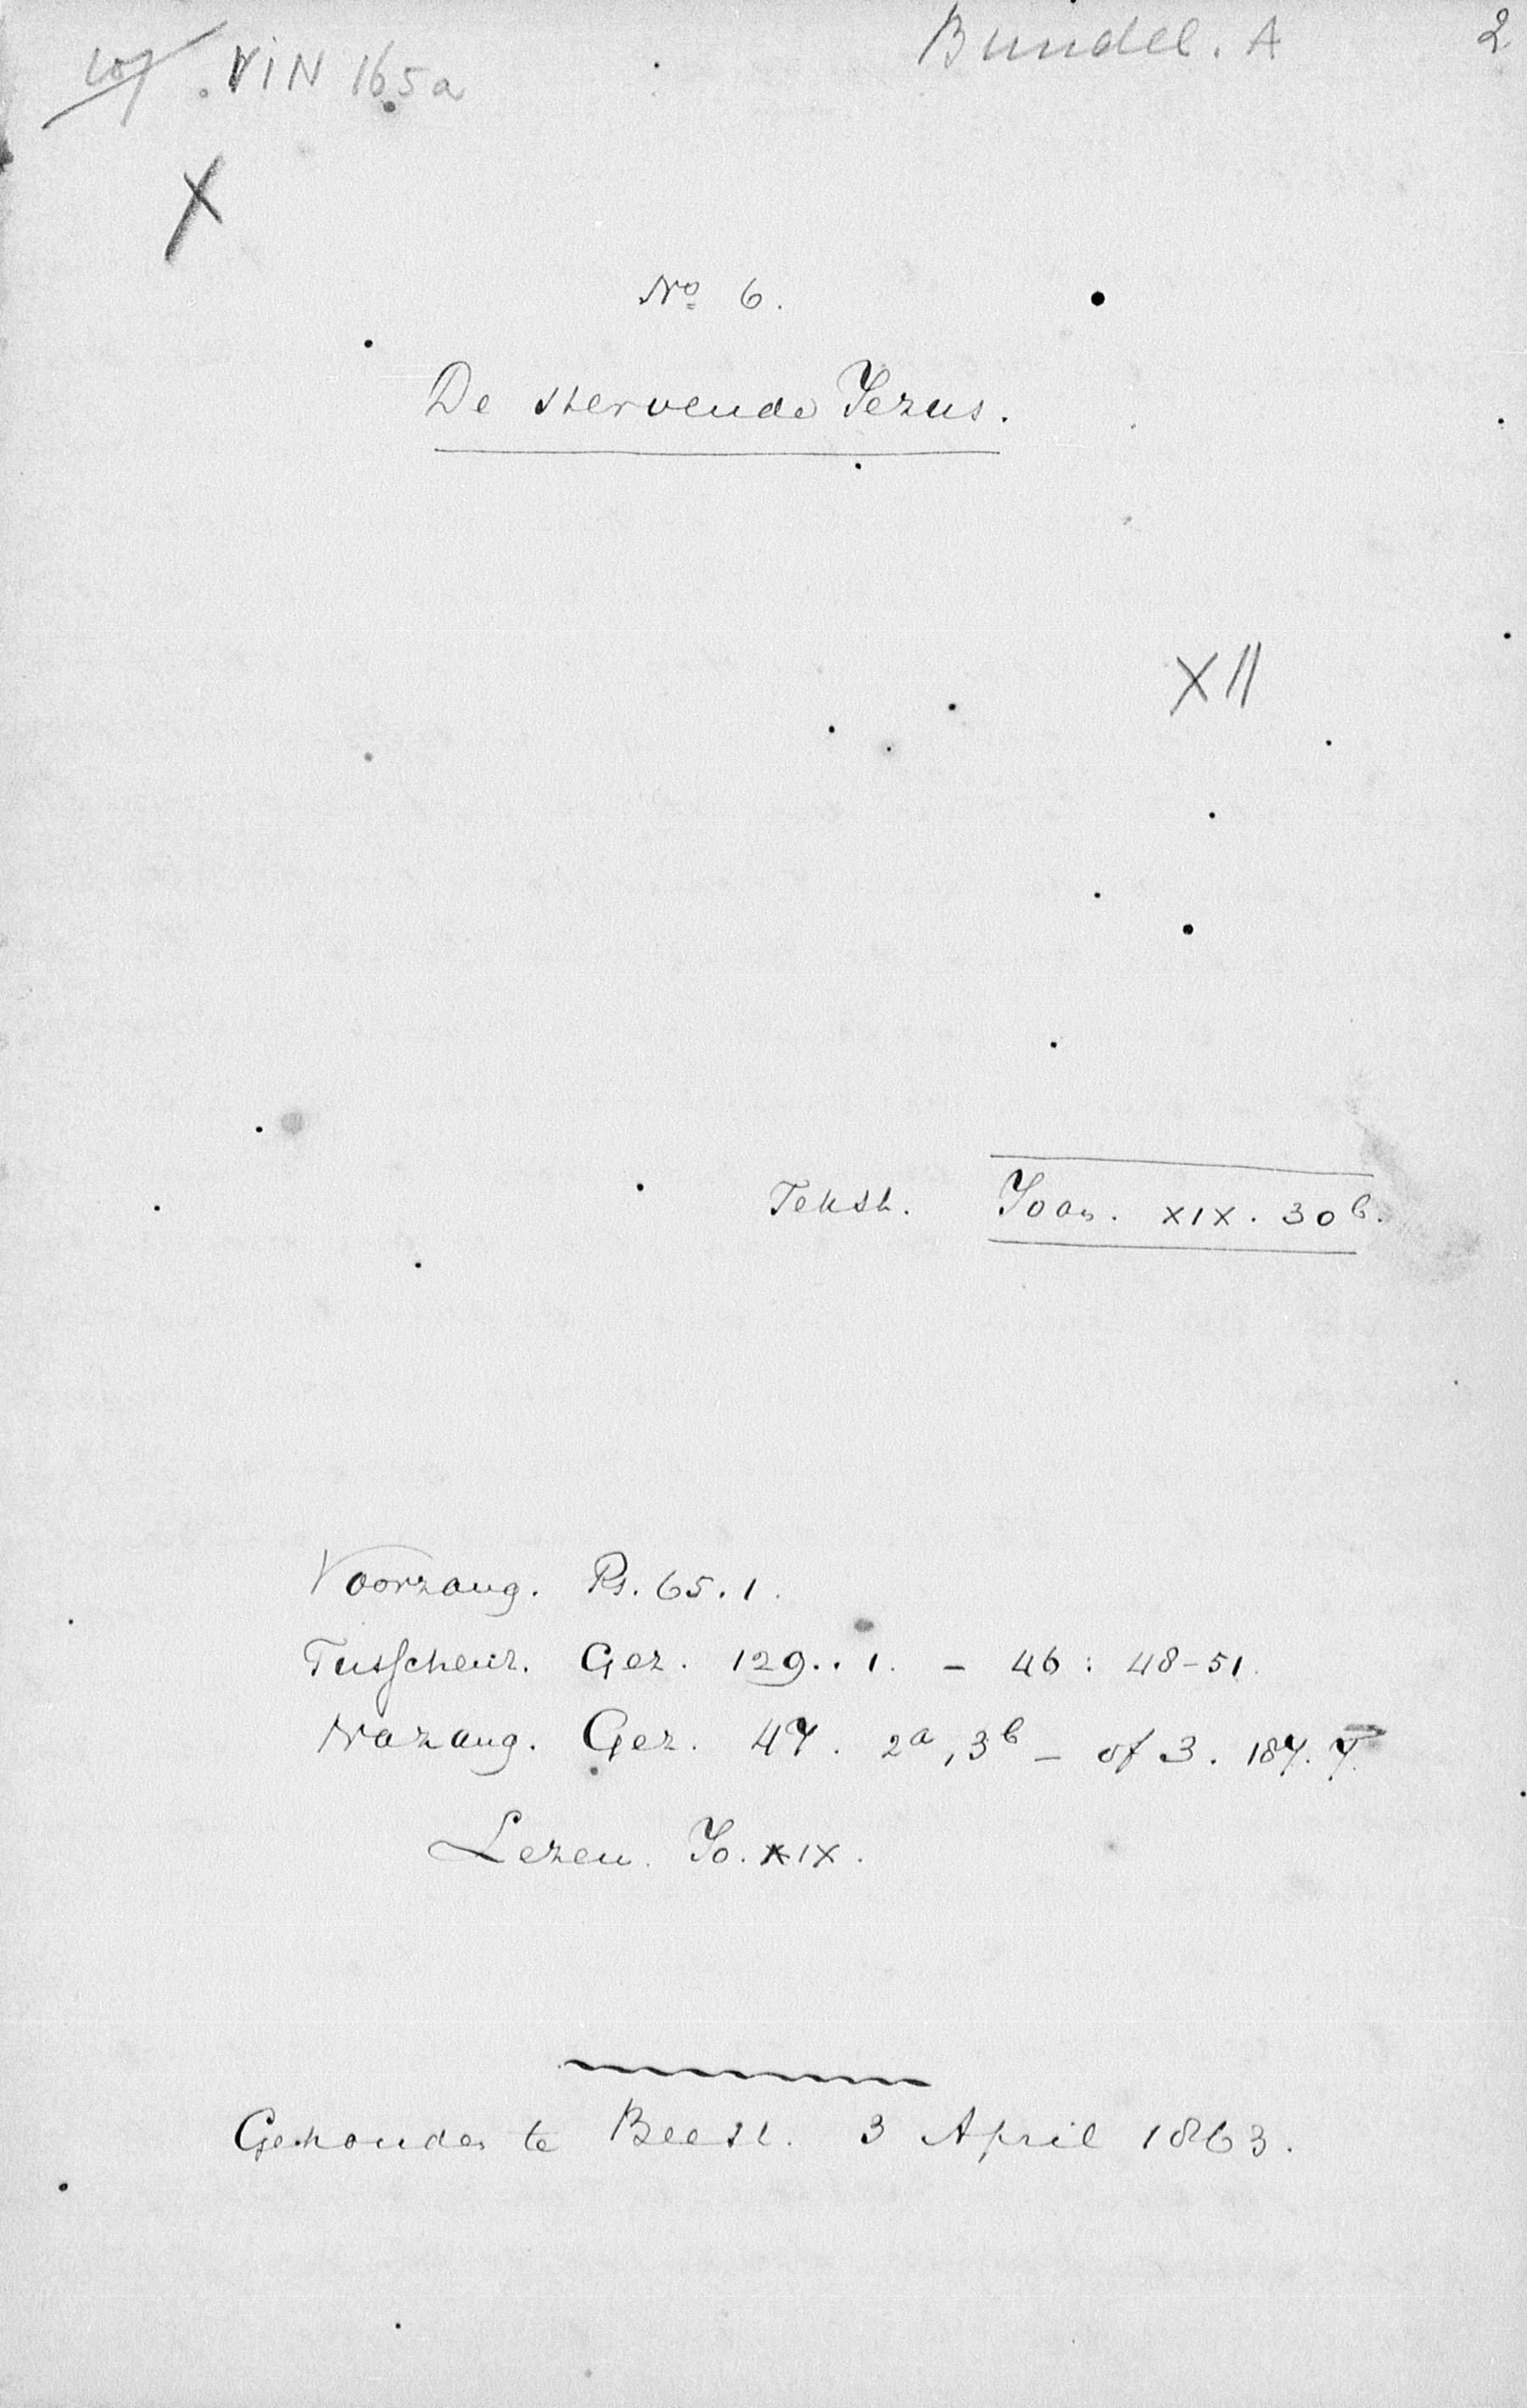 VIN 165a
Bundel. A
2
X
No 6.
De stervende Jezus.
XII
Tekst. Joan. XIX. 30b.
Voorzang. Ps. 65.1.
Tusschenz. Gez. 129..1. - 46: 48-51.
Nazang. Gez. 47. 2a, 3b - of 3. 187.
Lezen. Jo. XIX.
Gehouden te Beest. 3 April 1863.